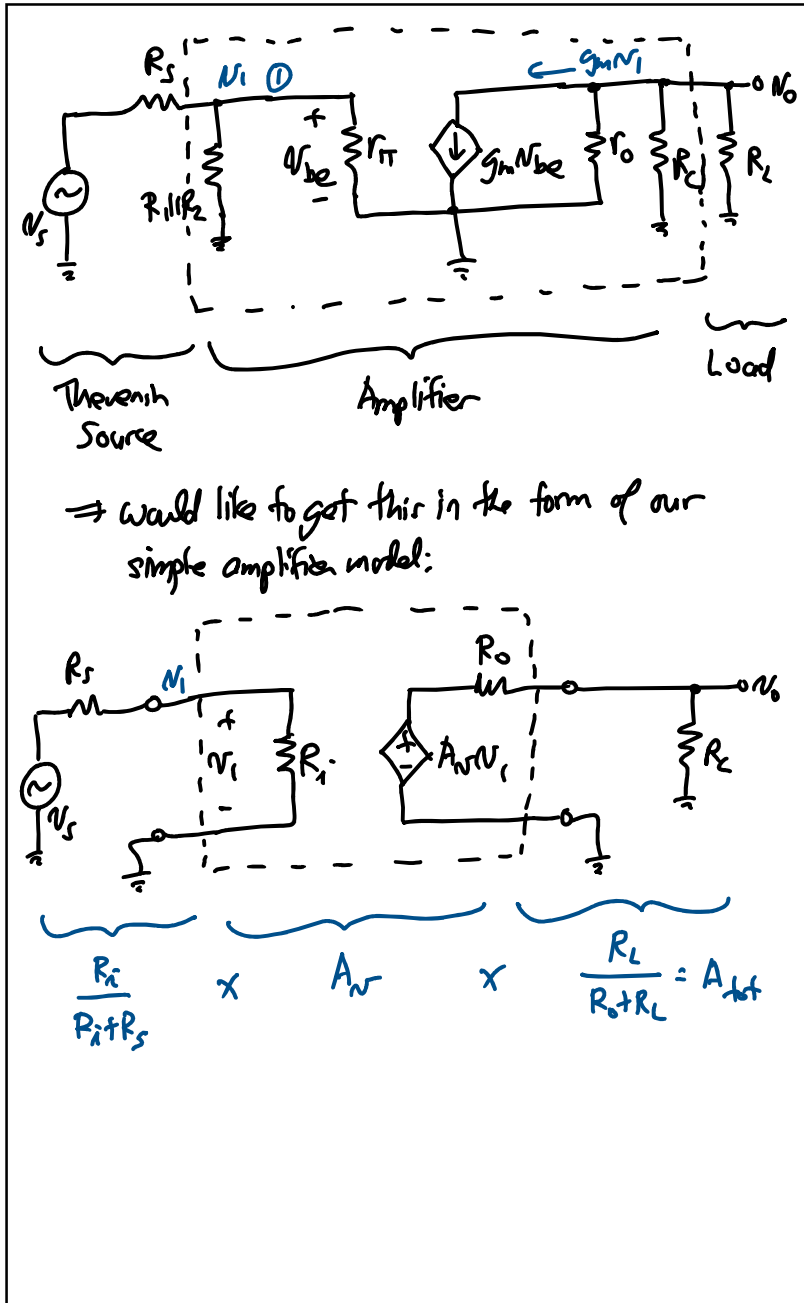 R_S v_1 ① g_m v_1 v_o
v_s R_1||R_2 + v_be - r_π g_m v_be r_o R_C R_L
Thevenin Amplifier Load
Source
⇒ would like to get this in the form of our
simple amplifier model:
R_S v_1 R_o v_o
v_s + v_1 - R_i + - A_v v_1 R_L
R_i/(R_i+R_S) x A_v x R_L/(R_o+R_L) = A_tot